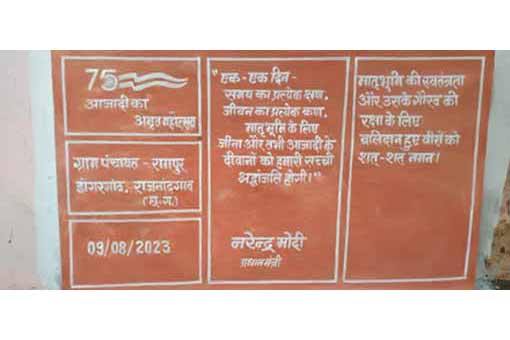 75
आजादी का
अमृत महोत्सव
ग्राम पंचायत - रामपुर
डोंगरगांव, राजनांदगांव
(छ.ग.)
09/08/2023
"एक - एक दिन -
समय का प्रत्येक क्षण,
जीवन का प्रत्येक कण,
मातृ भूमि के लिए
जीना और तभी आजादी के
दीवानों को हमारी सच्ची
श्रद्धांजलि होगी।"
नरेन्द्र मोदी
प्रधानमंत्री
मातृभूमि की स्वतंत्रता
और उसके गौरव की
रक्षा के लिए
बलिदान हुए वीरों को
शत्-शत् नमन।